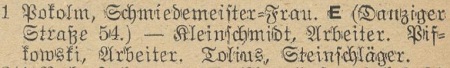 1 Pokolm, Schmiedemeister-Frau. E (Danziger
Straße 54.) — Kleinschmidt, Arbeiter. Pif-
kowski, Arbeiter. Tolius, Steinschläger.